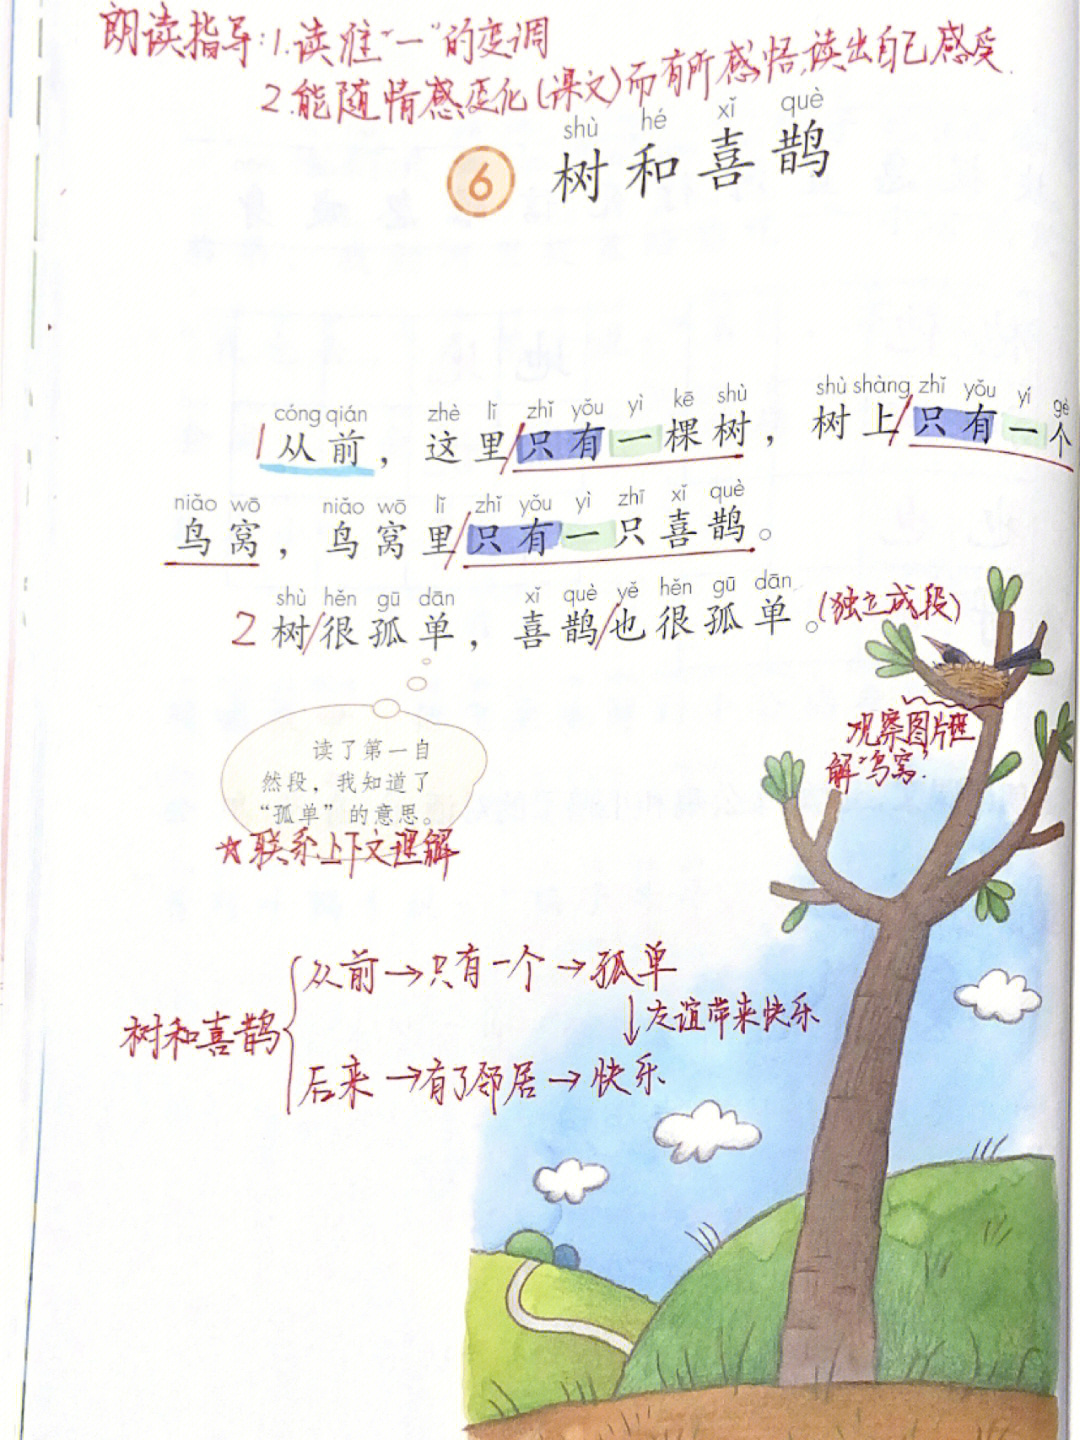 朗读指导:1.读准"一"的变调
2.能随情感变化(课文)而有所感悟,读出自己感受.
shù hé xǐ què
6 树和喜鹊
cóng qián zhè lǐ zhǐ yǒu yì kē shù shù shàng zhǐ yǒu yí gè
1 从前，这里/只有一棵树，树上/只有一个
niǎo wō niǎo wō lǐ zhǐ yǒu yì zhī xǐ què
鸟窝，鸟窝里/只有一只喜鹊。
shù hěn gū dān xǐ què yě hěn gū dān
2 树/很孤单，喜鹊/也很孤单。(独立成段)
观察图片理
解"鸟窝".
读了第一自
然段，我知道了
“孤单”的意思。
☆联系上下文理解
从前→只有一个→孤单
↓友谊带来快乐
树和喜鹊
后来→有了邻居→快乐